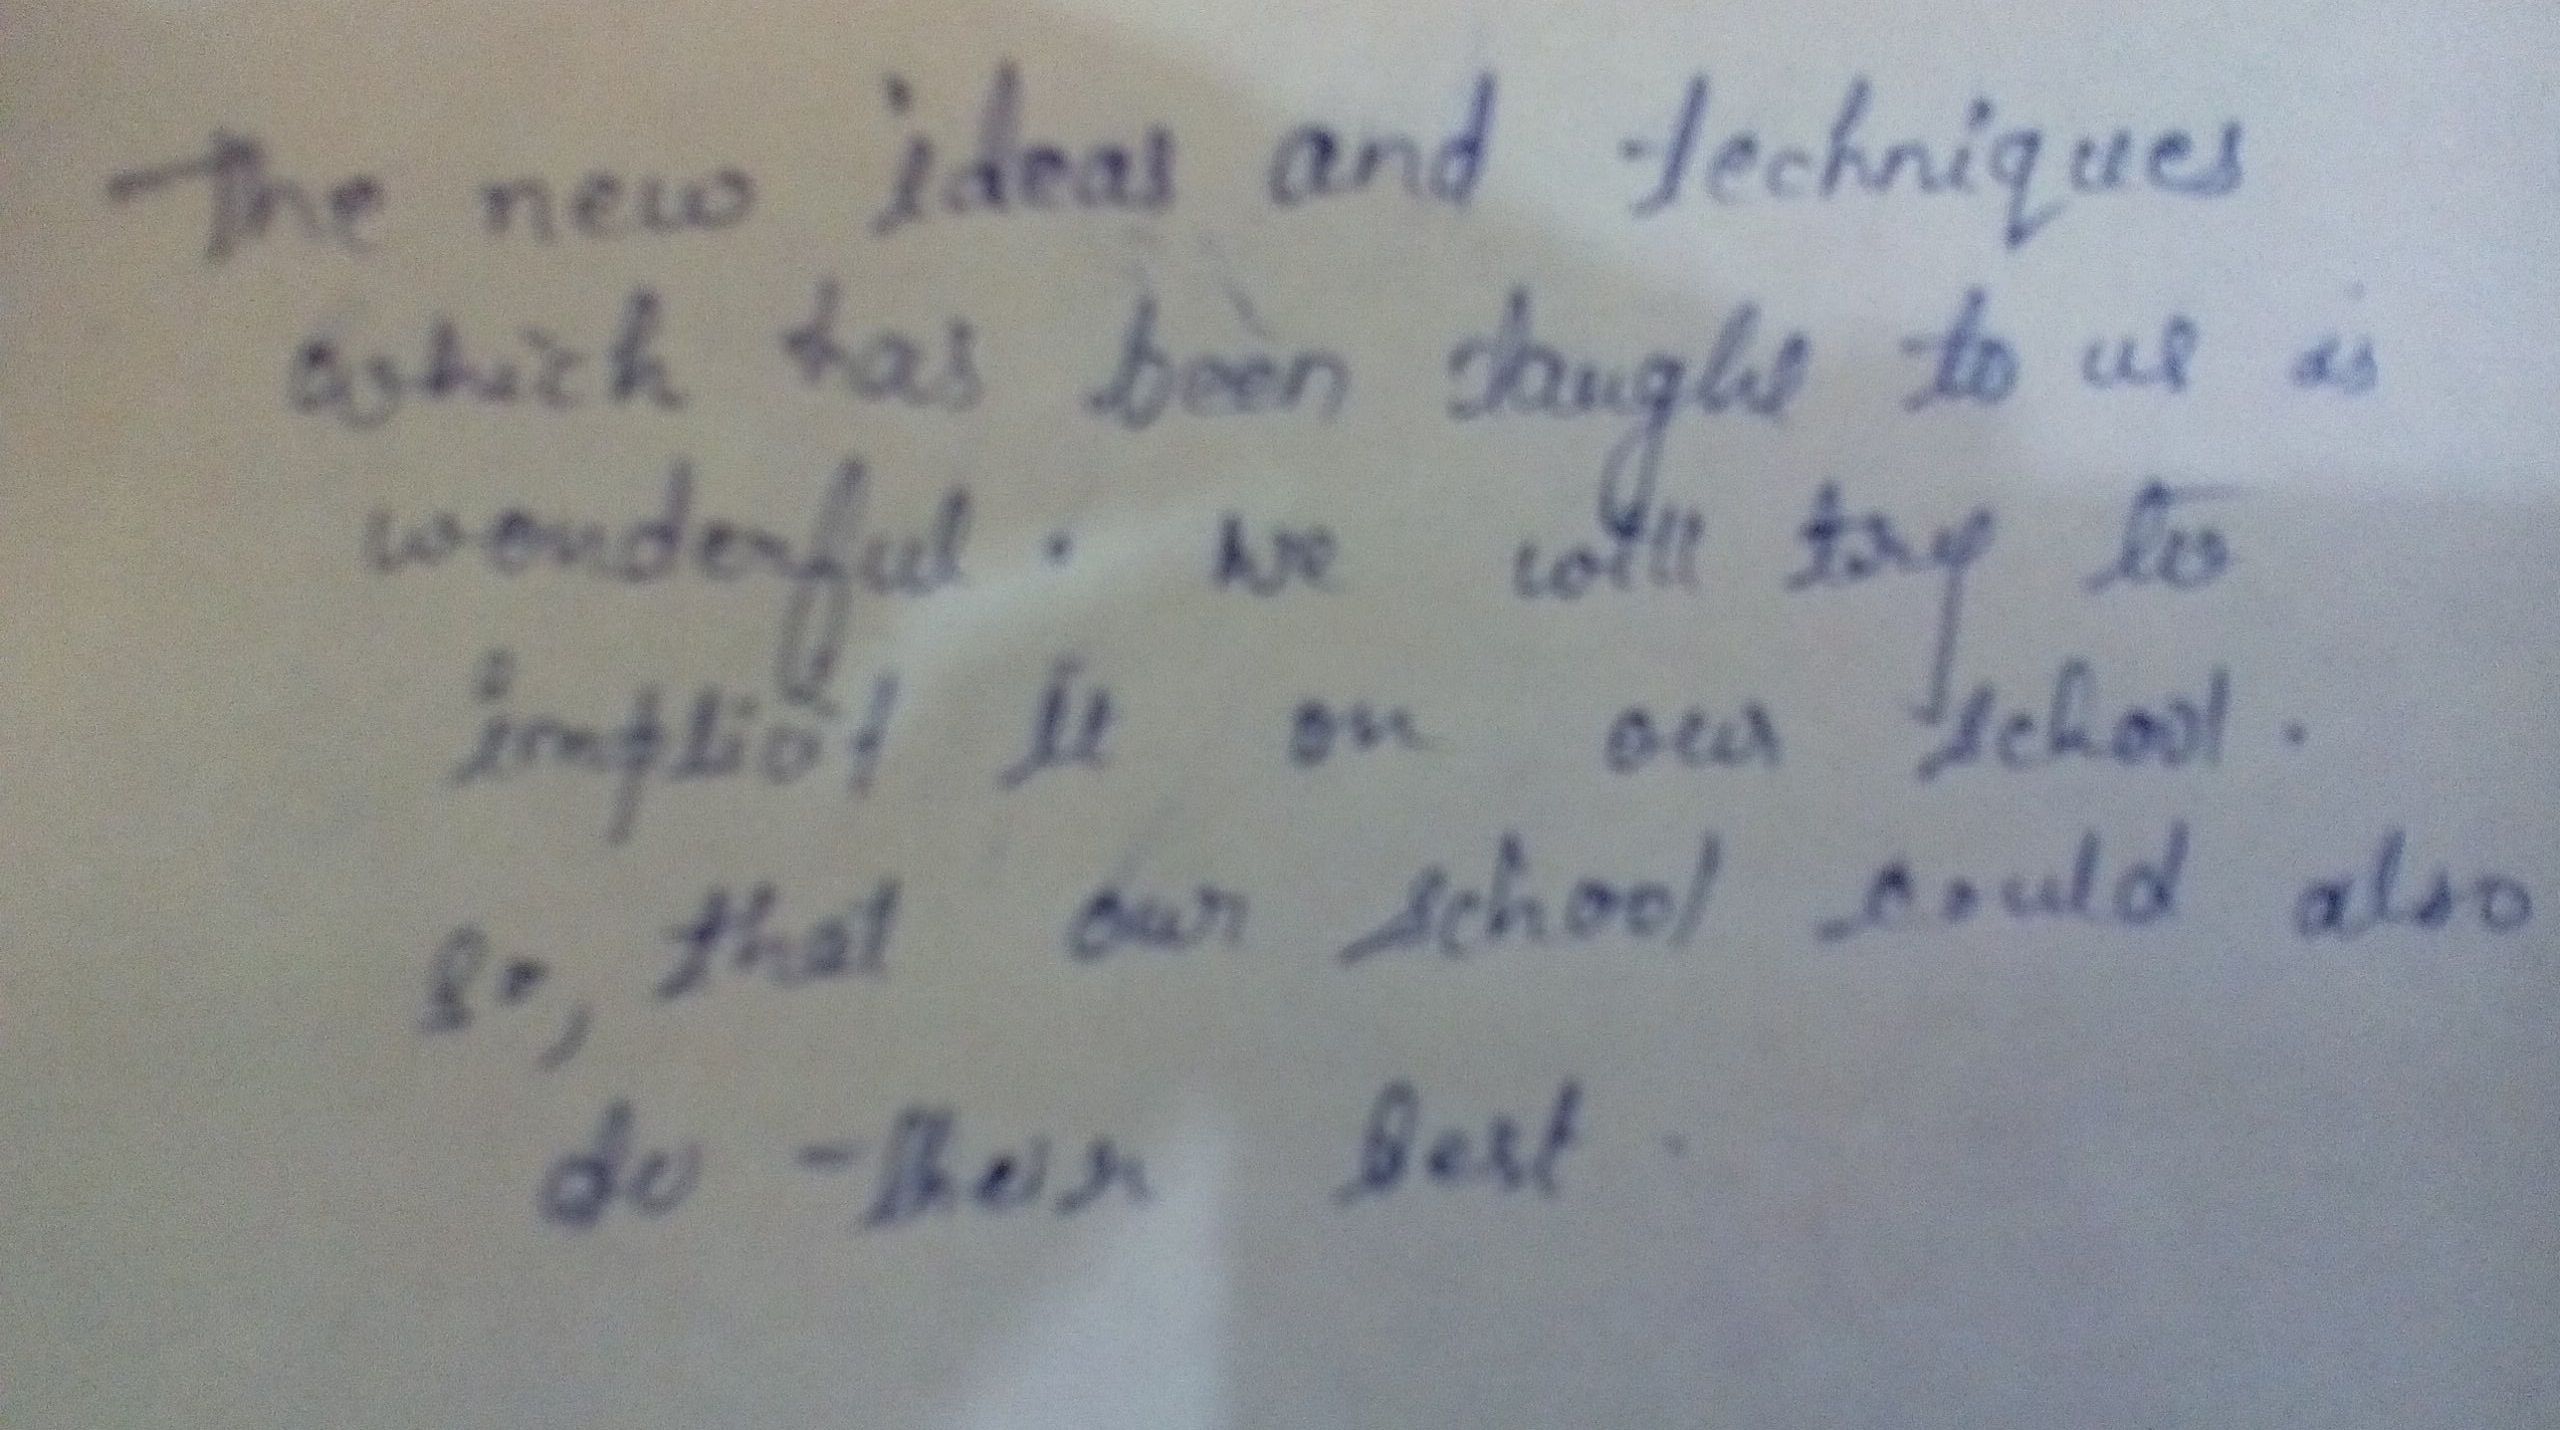 The new ideas and techniques
which has been taught to us is
wonderful. We will try to
impliot it on our school.
So, that our school could also
do their best.